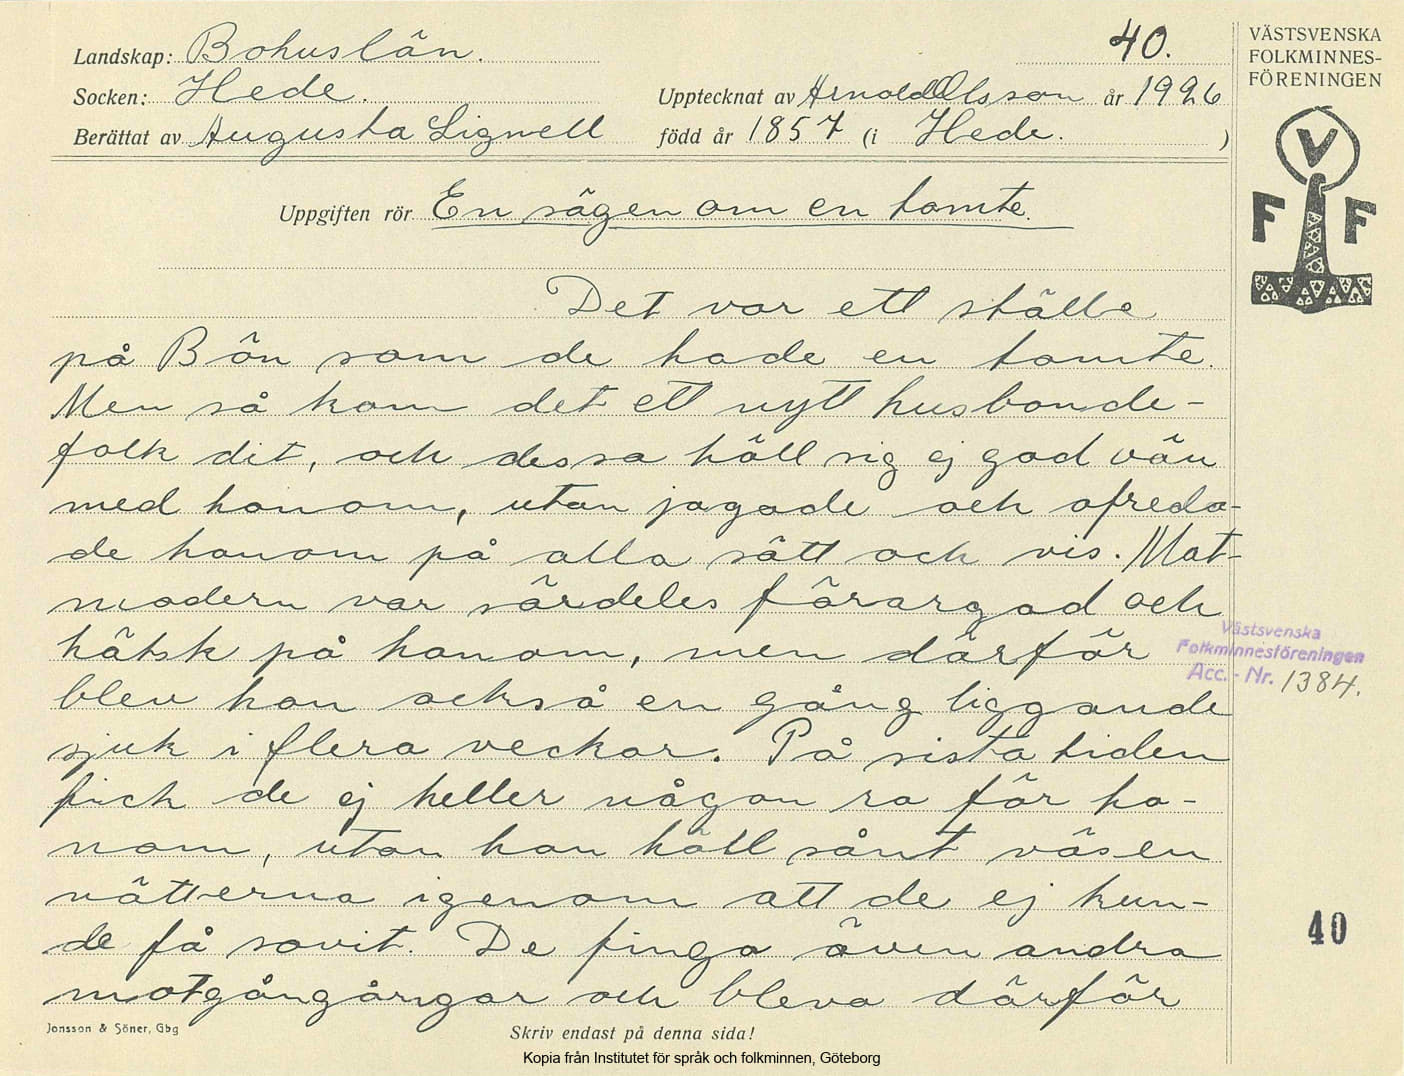 Landskap: Bohuslän.
40.
Socken: Hede.
Upptecknat av Arnold Olsson år 1926
Berättat av Augusta Signell
född år 1857 (i Hede. )
VÄSTSVENSKA
FOLKMINNES-
FÖRENINGEN
V
F F
Uppgiften rör En sägen om en tomte.
Det var ett ställe
på Bön som de hade en tomte.
Men så kom det ett nytt husbonde-
folk dit, och dessa höll sig ej god vän
med honom, utan jagade och ofreda-
de honom på alla sätt och vis. Mat-
modern var särdeles förargad och
hätsk på honom, men därför
blev hon också en gång liggande
sjuk i flera veckor. På sista tiden
fick de ej heller någon ro för ho-
nom, utan han höll sånt väsen
nätterna igenom att de ej kun-
de få sovit. De finga även andra
motgångångar och bleva därför
Västsvenska
Folkminnesföreningen
Acc. - Nr. 1384.
40
Jonsson & Söner, Gbg
Skriv endast på denna sida!
Kopia från Institutet för språk och folkminnen, Göteborg